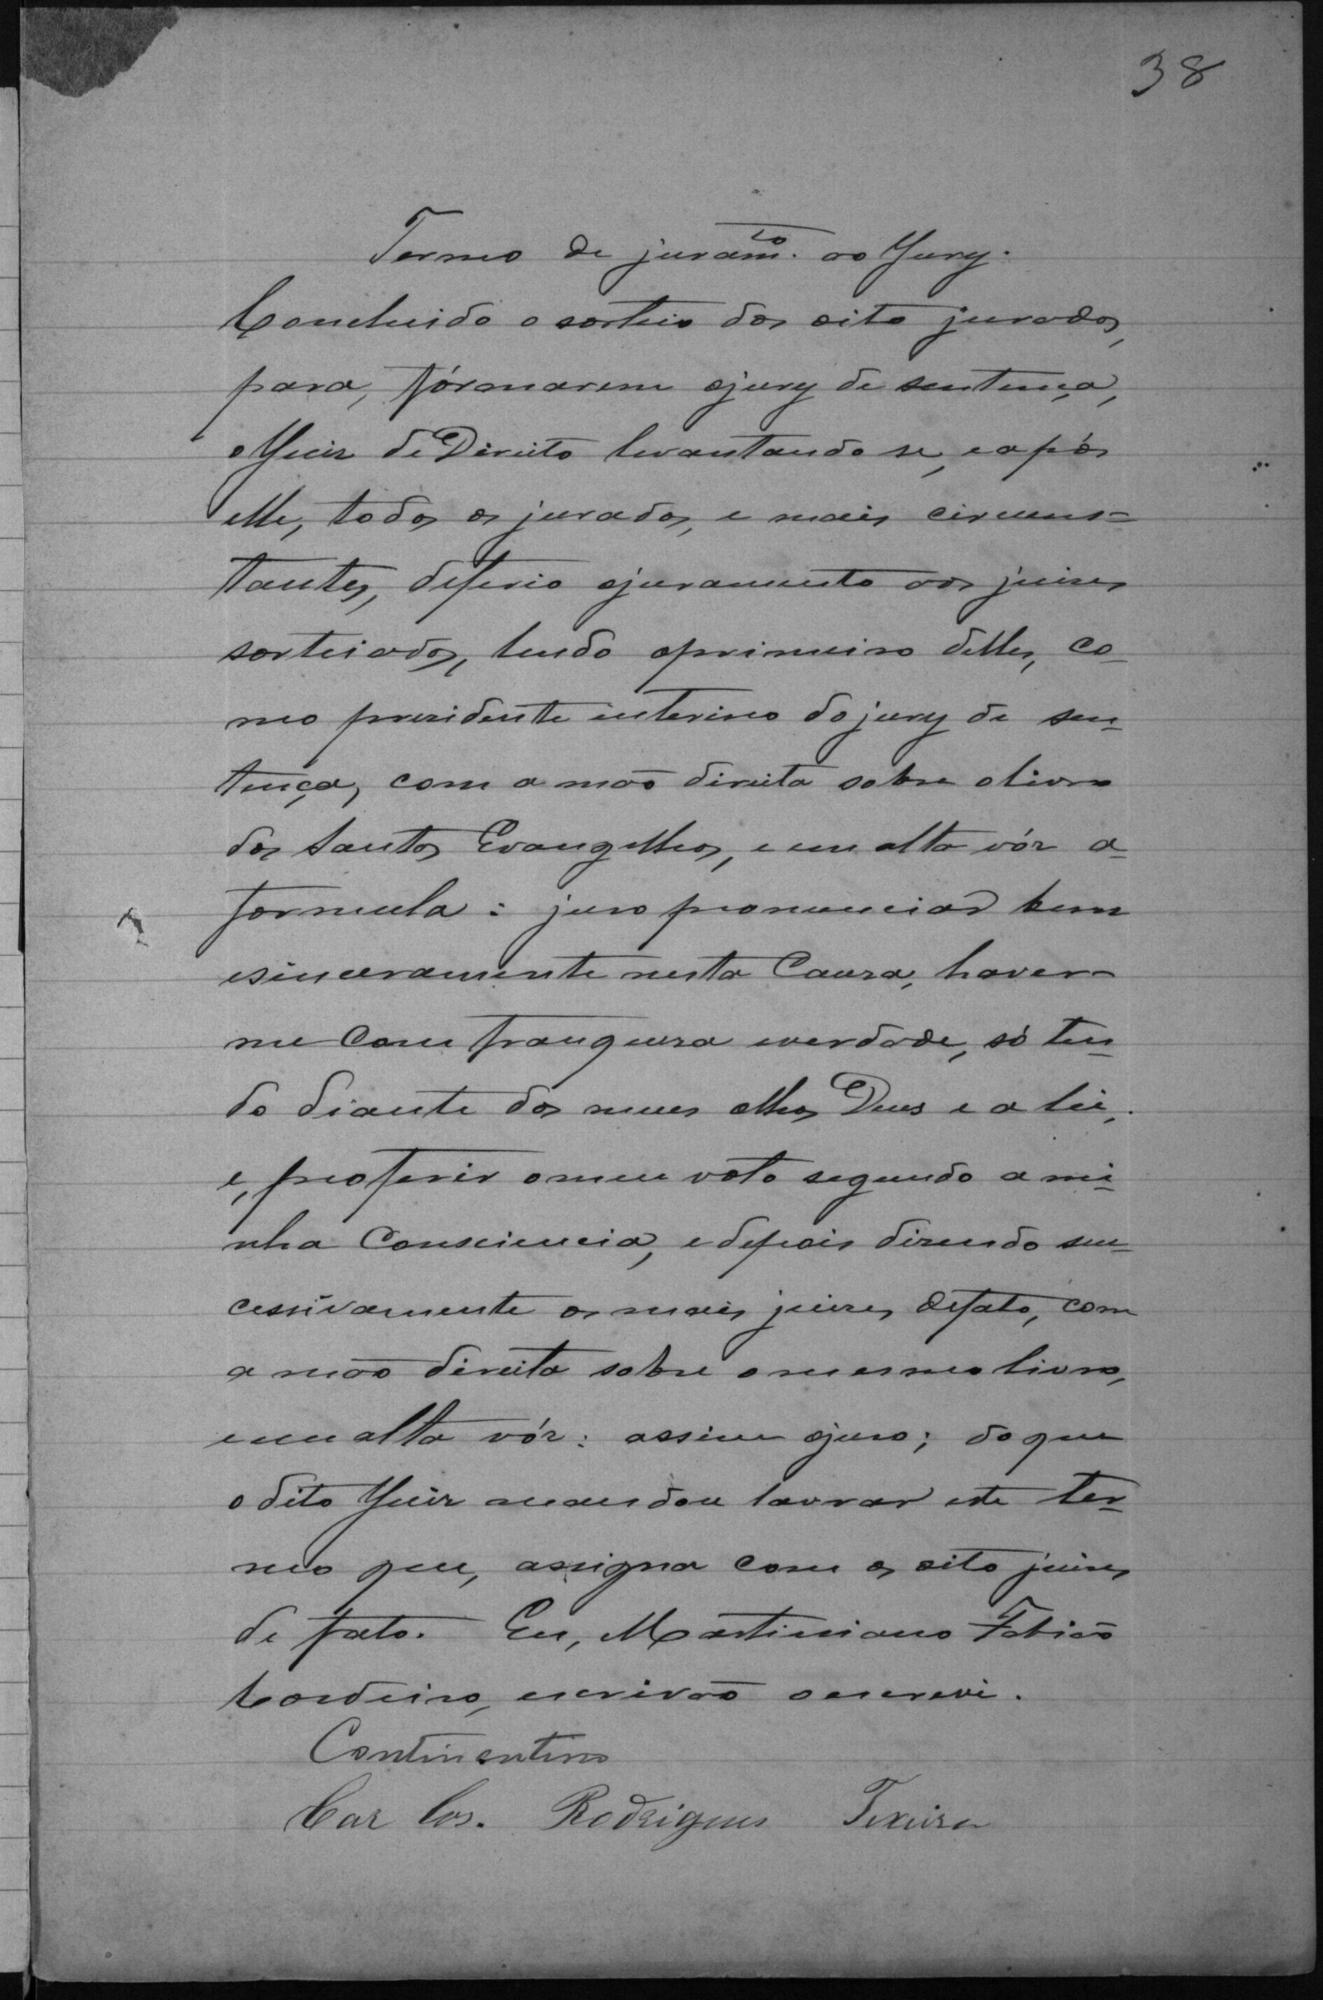 38
Termo de juram.to ao Jury.
Concluido o sorteio dos oito jurados,
para, fórmarem o jury de sentença,
o Juiz de Direito levantando se, e após
elle, todos os jurados, e mais circuns=
tantes, deferio o juramento aos juises
sorteiados, lendo o primeiro delles, co-
mo presidente interino do jury de sen-
tença, com a mão direita sobre o livro
dos Santos Evangelhos, e em alta vóz a
formula: juro pronunciar bem
e sinceramente nesta Causa, haver-
me Com franquesa e verdade, só ten-
do diante dos meus olhos Deus e a lei,
e, proferir o meu voto segundo a mi-
nha Consciencia, e depois dizendo suc-
cessivamente os mais juizes de fato, com
a mão direita sobre o mesmo livro,
e em alta vóz: assim o juro; do que
o dito Juiz mandou lavrar este ter-
mo que, assigna com os oito juises
de fato. Eu, Martiniano Fabião
Cordeiro, escrivão o escrevi.
Continentino
Car los. Rodrigues Texeira